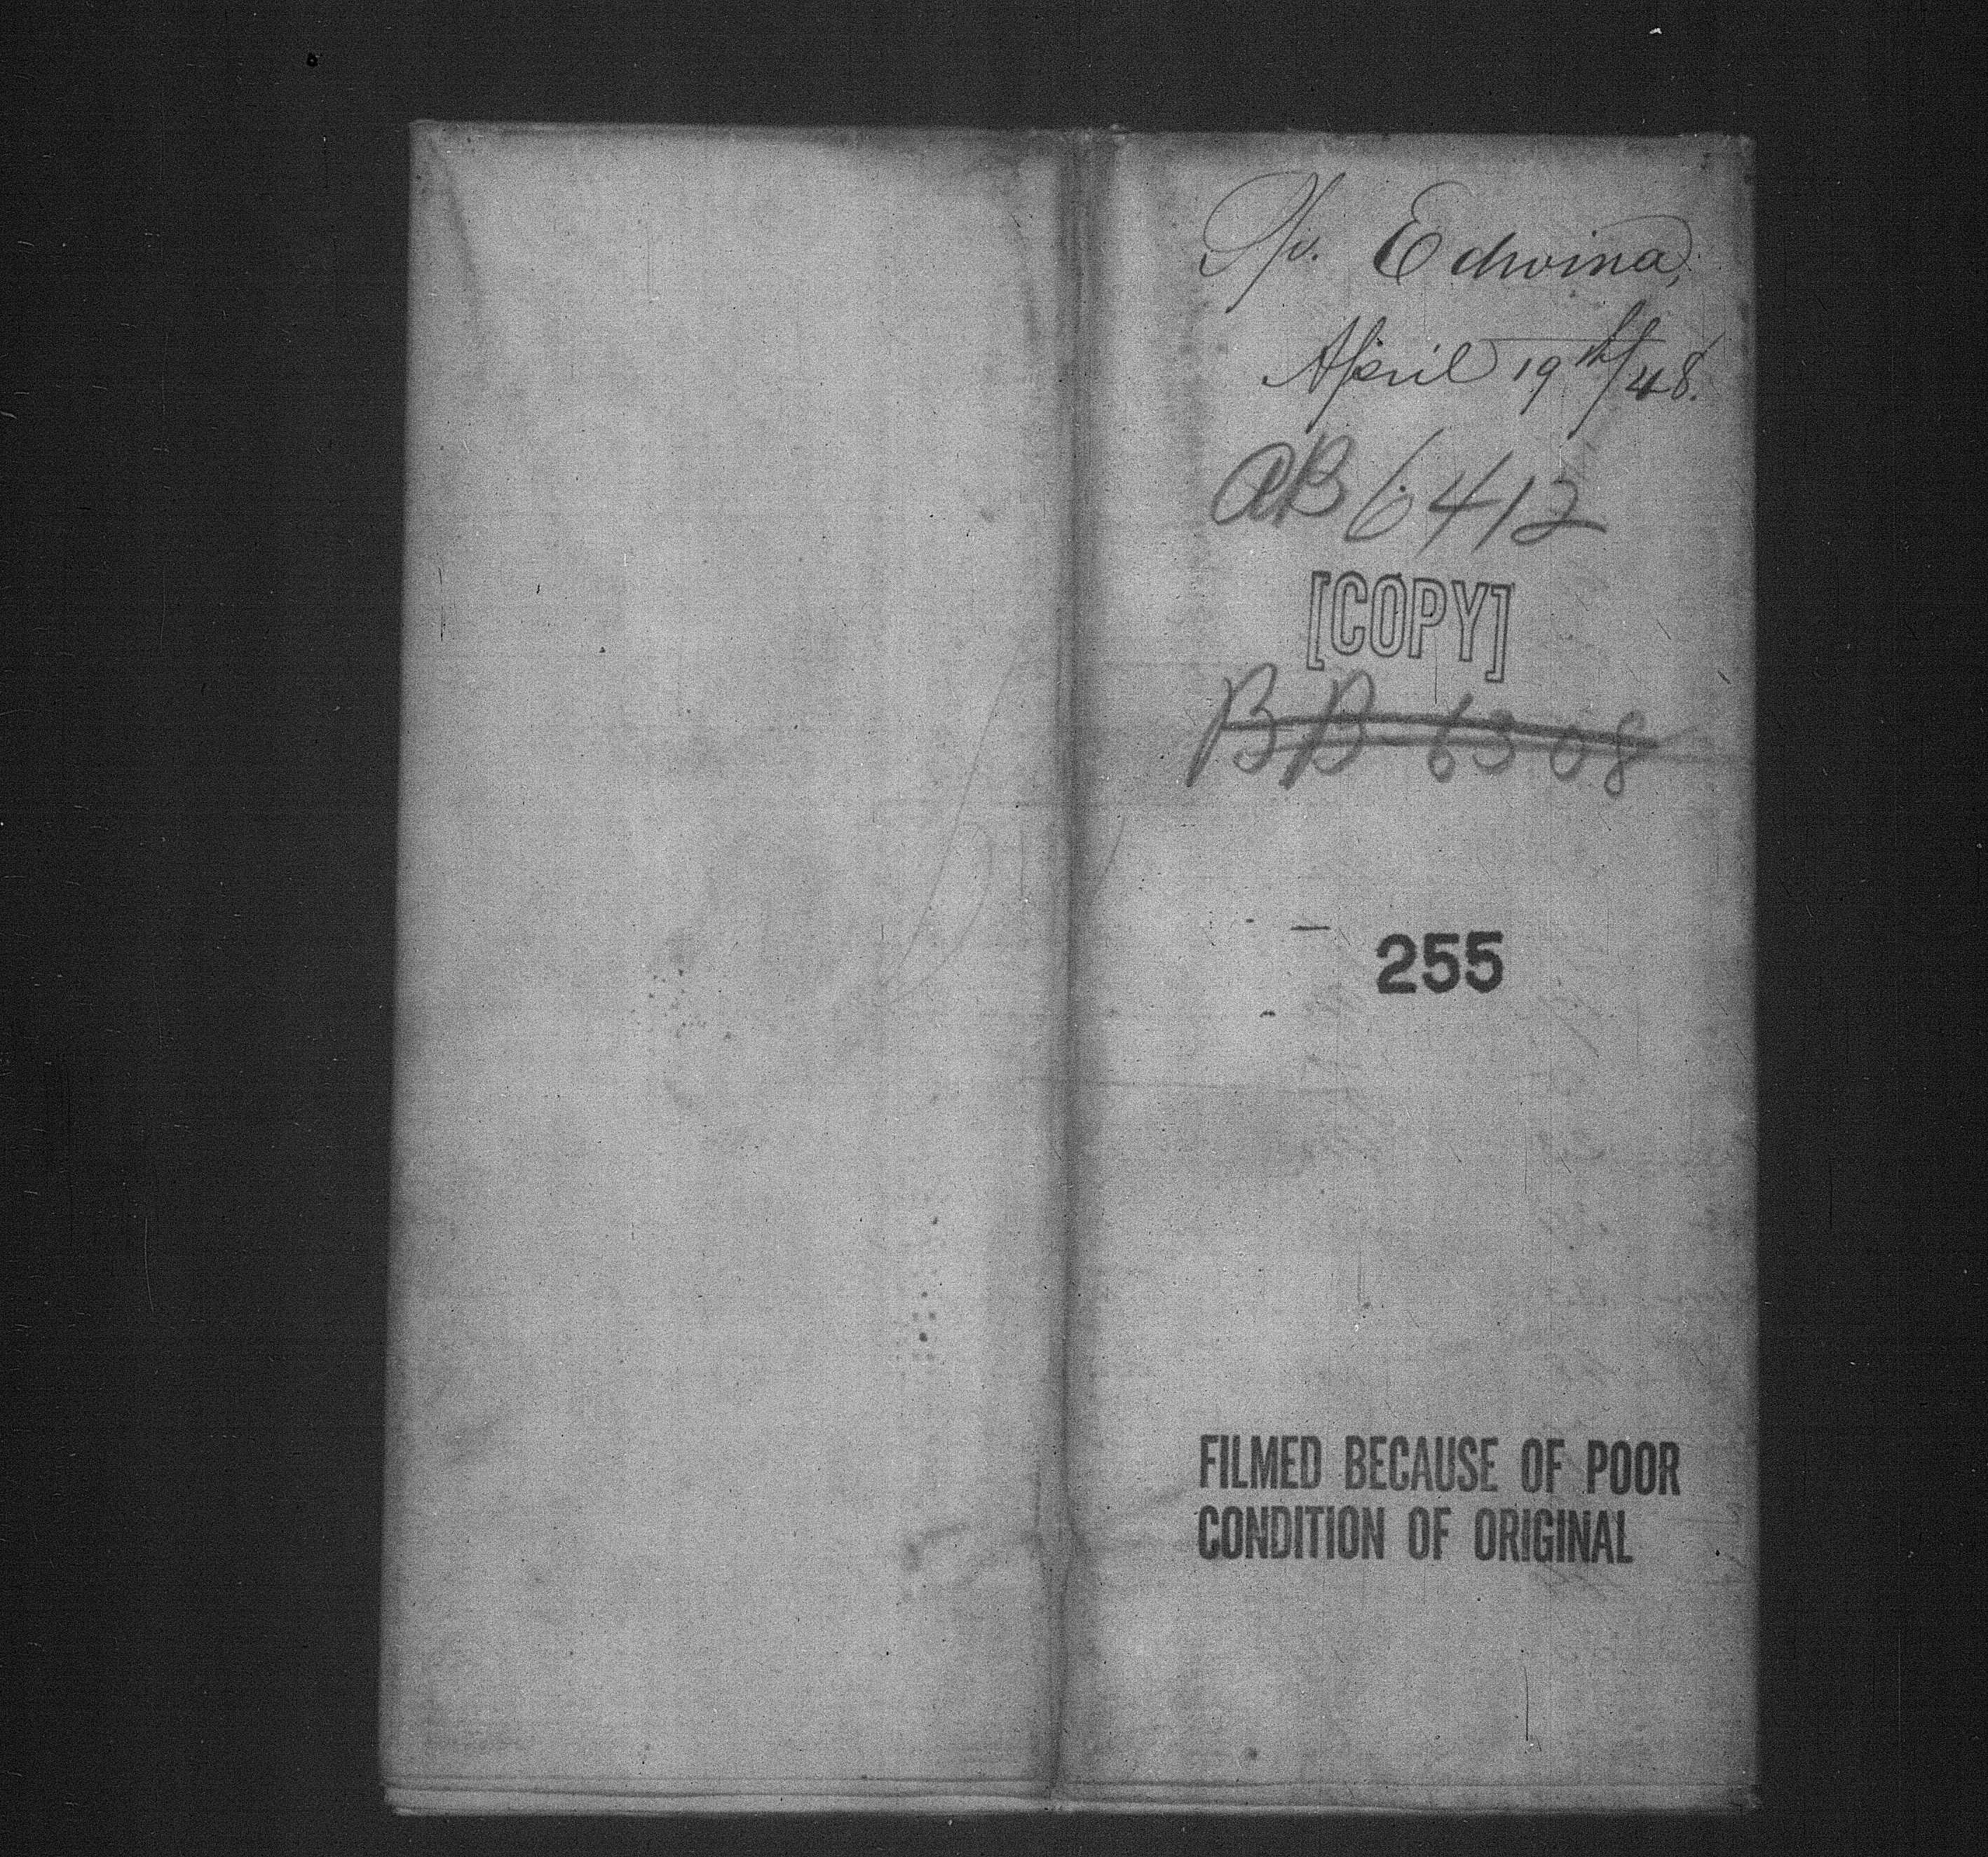 Sp. Edwina,
April 19th/48.
AB 6412
[COPY]
BB 6308
255
FILMED BECAUSE OF POOR
CONDITION OF ORIGINAL